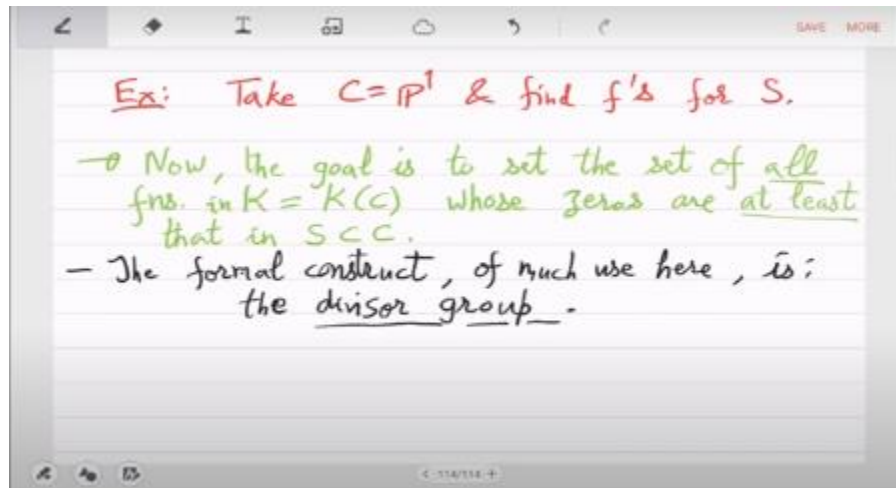 SAVE MORE
Ex: Take C = ℙ¹ & find f's for S.
→ Now, the goal is to set the set of all
fns. in K = K(C) whose zeros are at least
that in S ⊂ C.
- The formal construct, of much use here, is:
the divisor group.
< 114/114 +